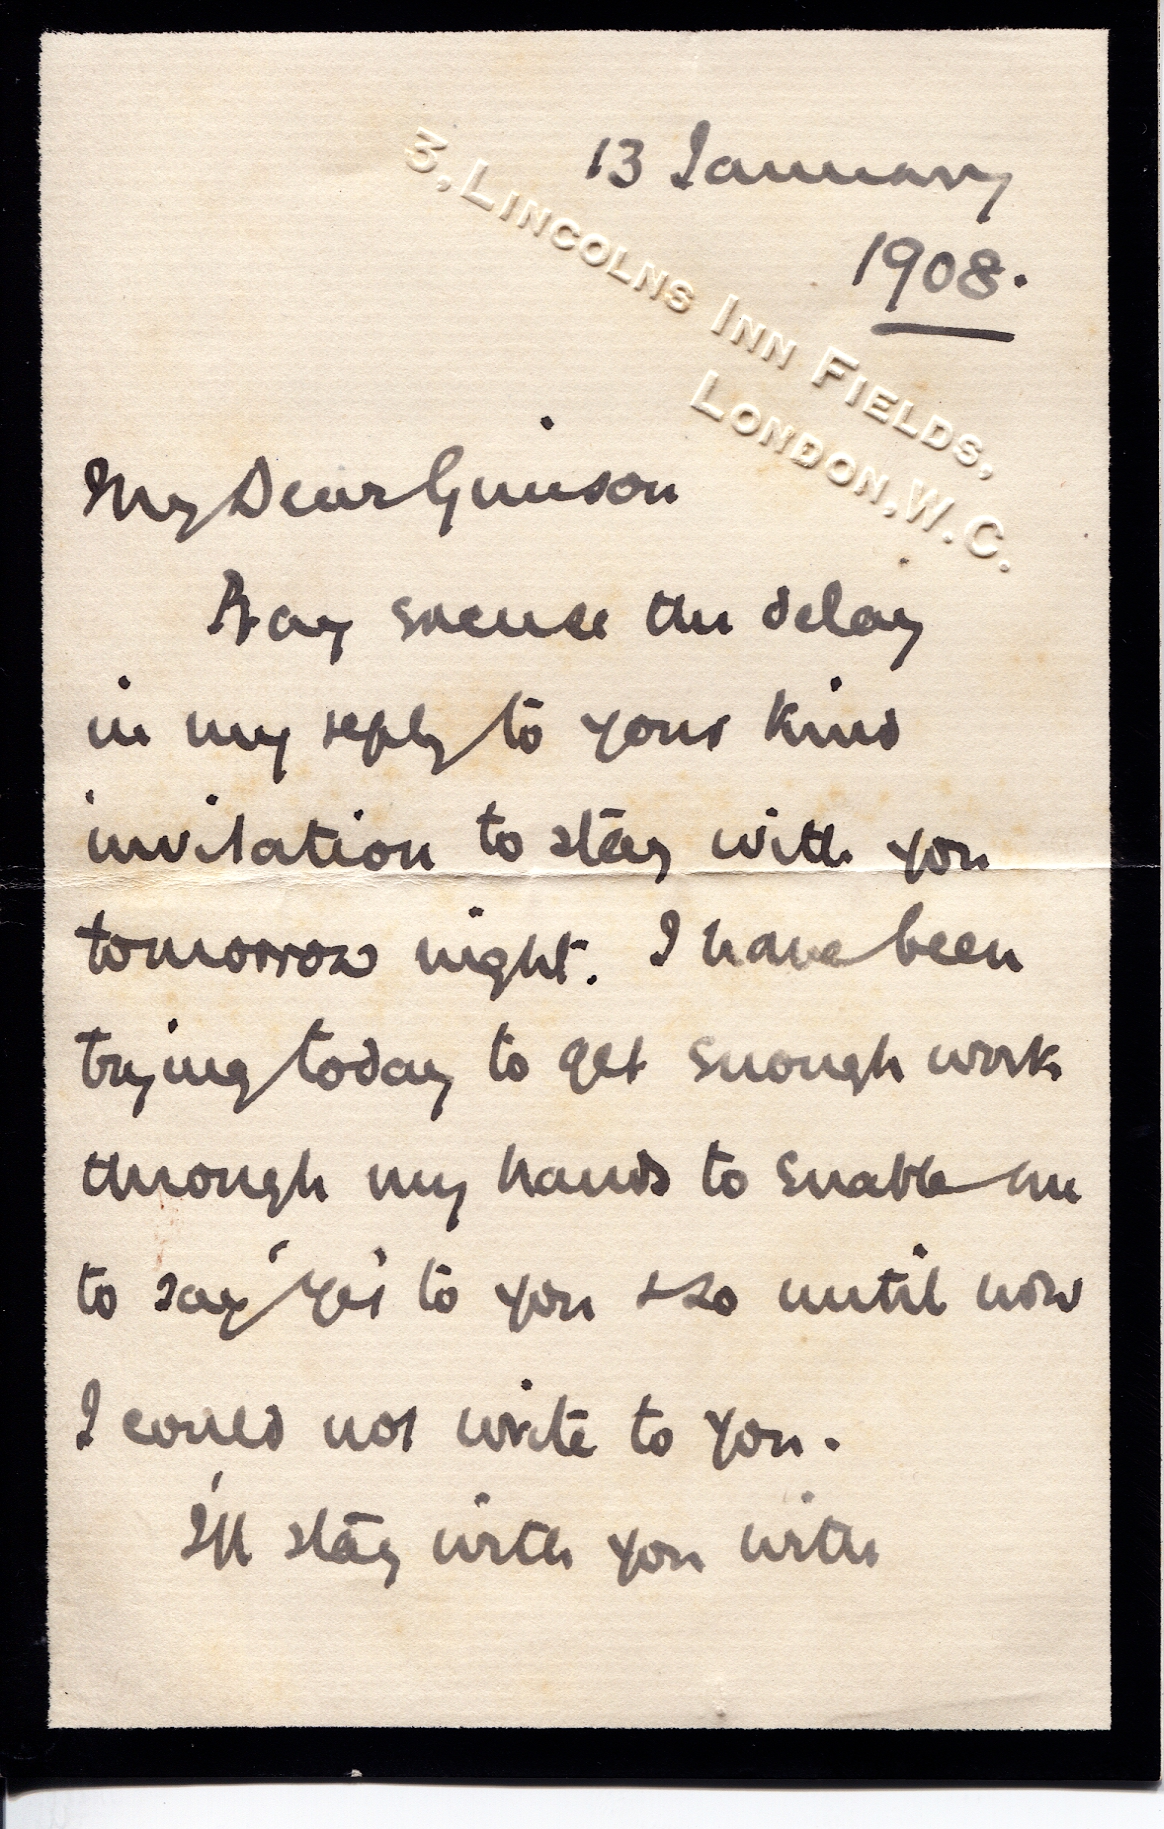 13 January
1908.
3, LINCOLNS INN FIELDS,
LONDON, W.C.
My Dear Gunison
Pray excuse the delay
in my reply to your kind
invitation to stay with you
tomorrow night. I have been
trying today to get enough work
through my hands to enable me
to say 'Yes' to you & so until now
I could not write to you.
I'll stay with you with